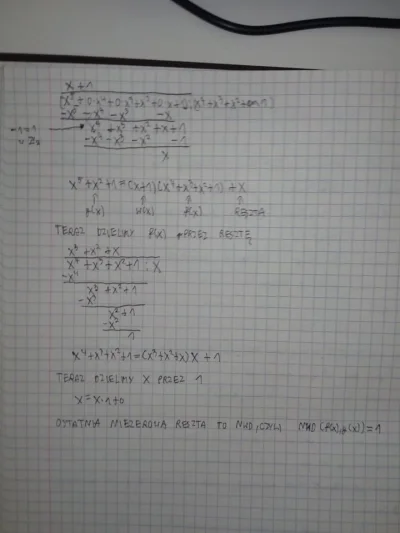 x+1
(x⁵+0·x⁴+0·x³+x²+0·x+1):(x⁴+x³+x²+1)
-x⁵-x⁴-x³ -x
-1=1 x⁴+x³+x²+x+1
w Z₂ -x⁴-x³-x² -1
x
x⁵+x²+1=(x+1)(x⁴+x³+x²+1)+x
RESZTA
TERAZ DZIELIMY P(X) PRZEZ RESZTĘ
x³+x²+x
x⁴+x³+x²+1 : x
-x⁴
x³+x²+1
-x³
x²+1
-x²
1
x⁴+x³+x²+1=(x³+x²+x)x+1
TERAZ DZIELIMY X PRZEZ 1
x=x·1+0
OSTATNIA NIEZEROWA RESZTA TO NWD, CZYLI NWD(f(x),g(x))=1